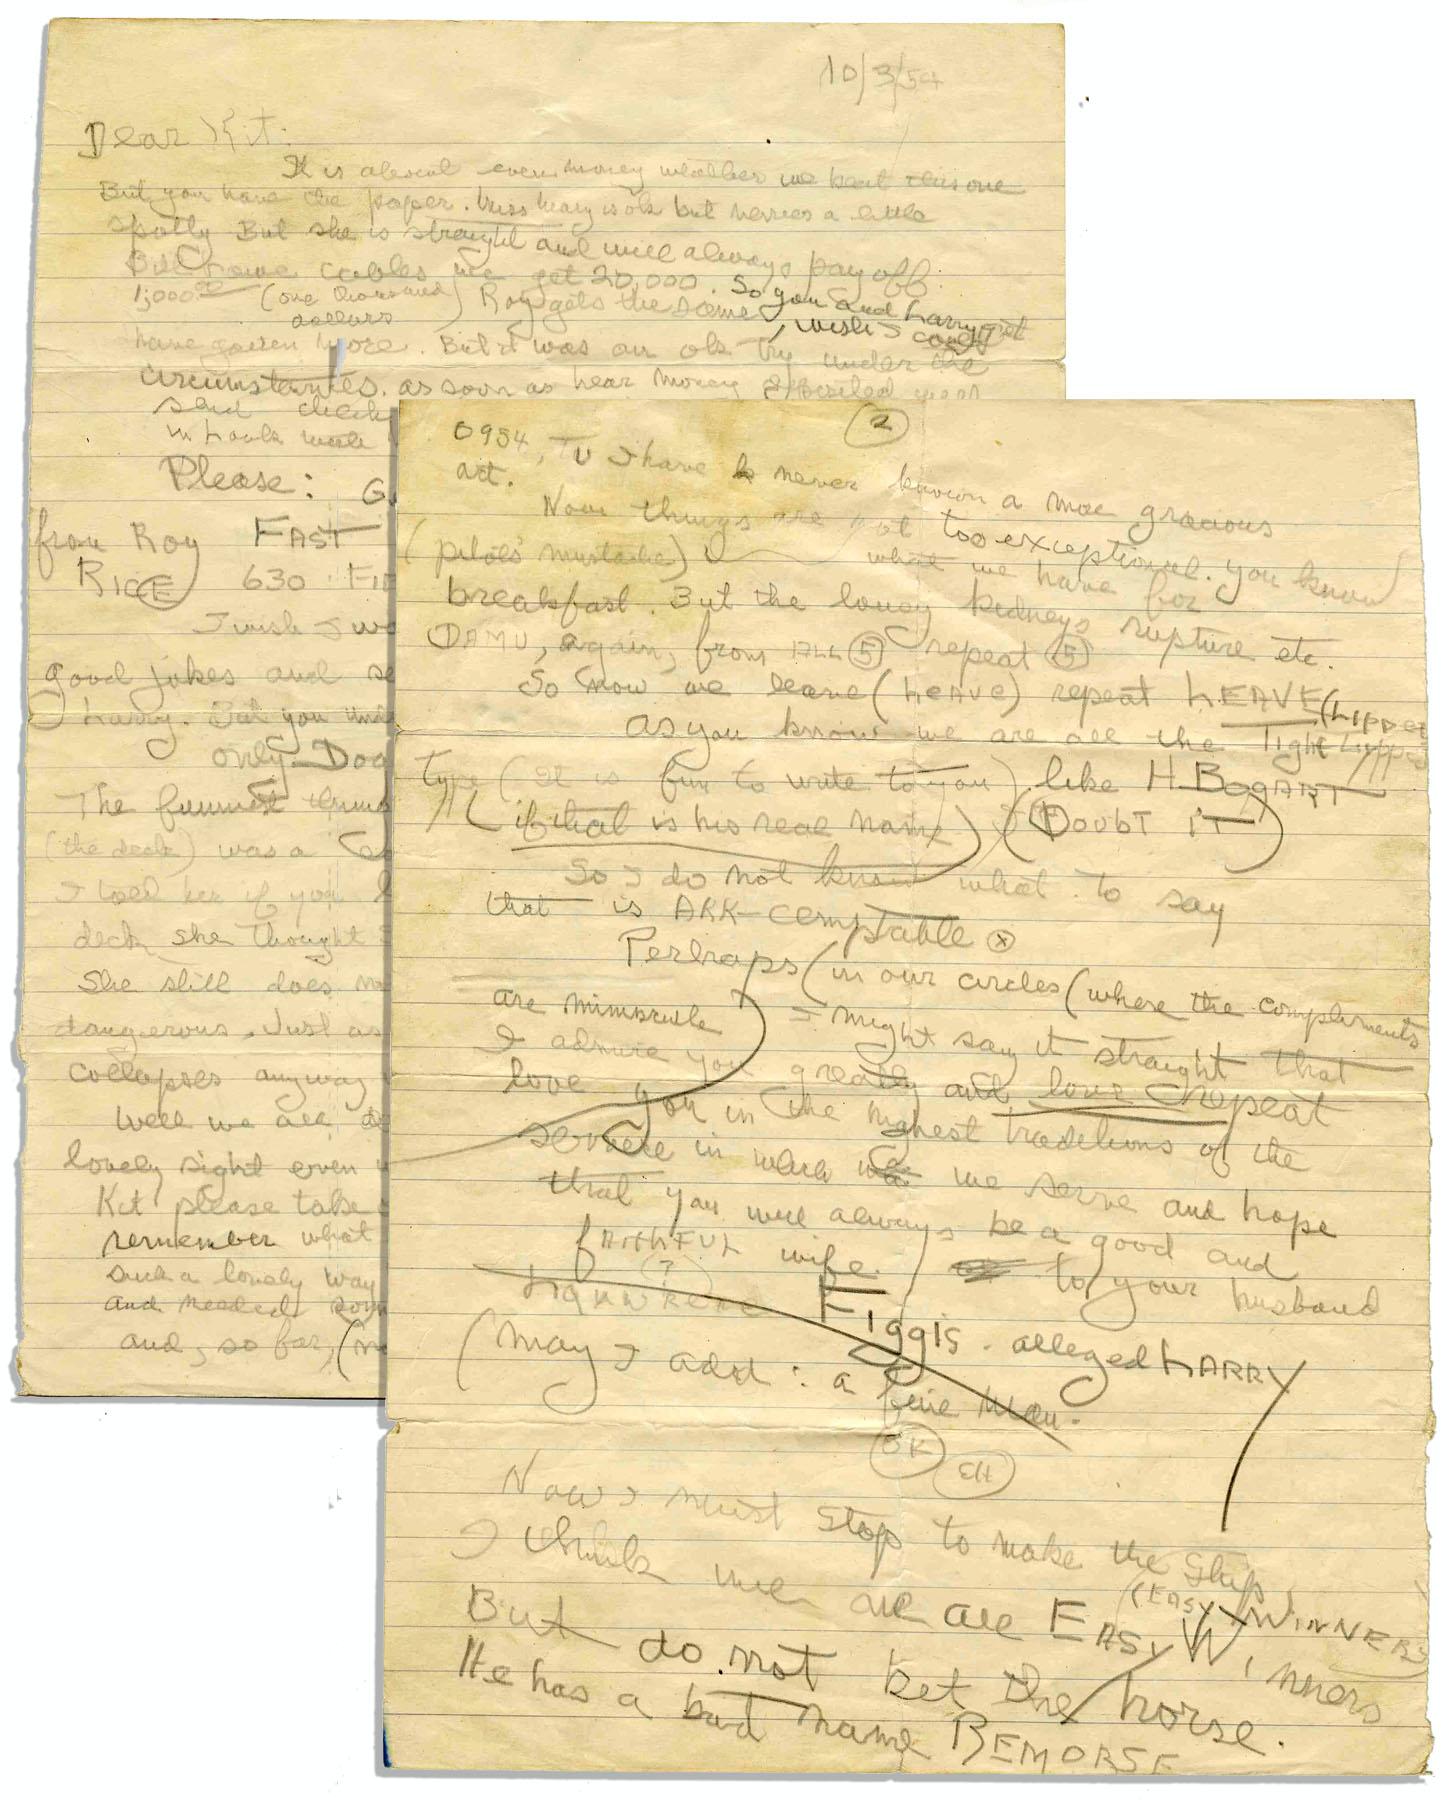 10/3/54
Dear Kit:
It is about even money whether we beat this one
But you have the paper. Miss Mary is ok but nerves a little
spotty But she is straight and will always pay off.
cables me get 20,000. So you and Harry get
1,000.00 (one thousand Roy gets the same, wish I could
dollars)
have gotten more. But it was an ok try under the
circumstances. as soon as hear money deposited
send check
in bank
Please: G
from Roy FAST
RICE 630 FIF
I wish I
good jokes and se
Harry. But you
only. Doo
The funniest
(the deck) was a
I told her if you
deck she thought
She still does
dangerous. Just as
collapses anyway
Well we all
lovely sight even
Kit please take
remember what
such a lovely way
and needed som
and, so far,
2
0954, TU I have never known a more gracious
act.
Now things are not too exceptional. You know
(pilots' mustache) what we have for
breakfast. But the lousy kidneys rupture etc.
DAMU, again, from ALL 5 repeat 5
So now we leave (HEAVE) repeat HEAVE (Lipper
as you know we are all the Tight Lipped
type (It is fun to write to you) like H. BOGART
(if that is his real name) (DOUBT IT)
So I do not know what to say
that is AKK-cemptable x
Perhaps (in our circles (where the compliments
are miniscule) I might say it straight that
I admire you greatly and love repeat
love you in the highest traditions of the
service in which we serve and hope
that you will always be a good and
fAITHFUL wife. to your husband
(?)
Figgis. alleged HARRY
(May I add: a fine man.
OK EH
Now I must stop to make the ship.
I think we are all EASY Winners
(EASY WINNERS
But do not bet the horse.
He has a bad name REMORSE